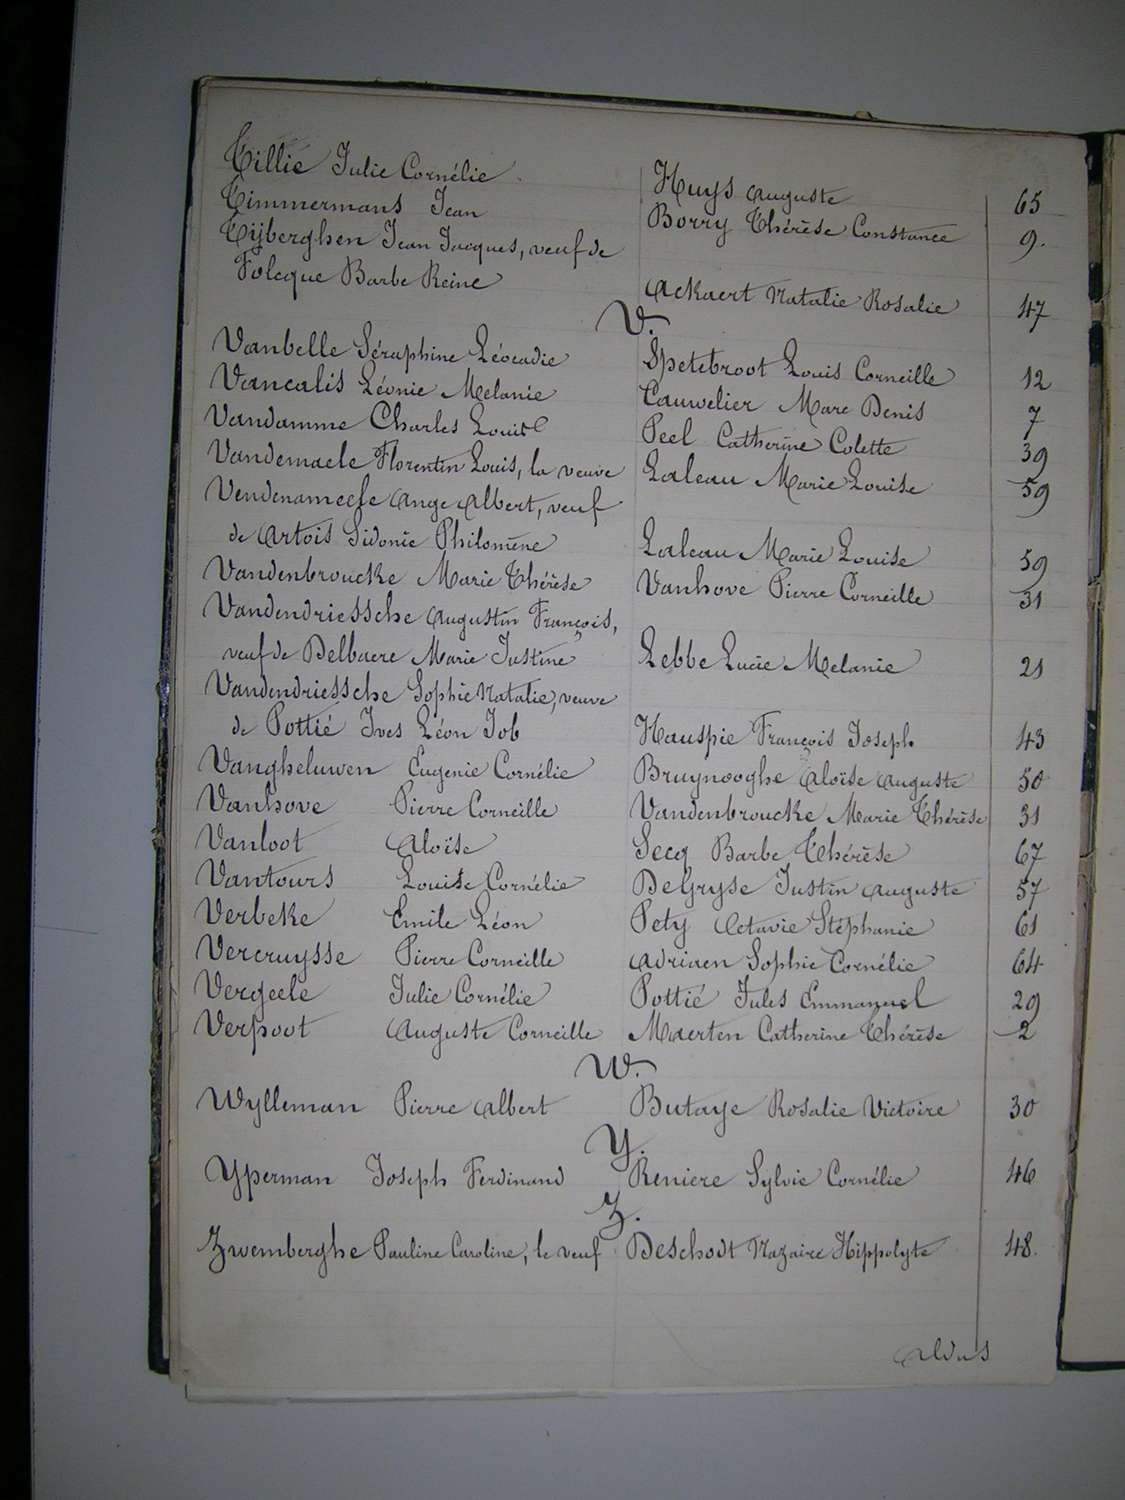 Tillie Julie Cornélie Huys Auguste 65
Timmermans Jean Borry Thérèse Constance 9.
Tijberghen Jean Jacques, veuf de
Folcque Barbe Reine Ackaert Natalie Rosalie 47
V.
Vanbelle Séraphine Léocadie Spetebroot Louis Corneille 12
Vancalis Léonie Melanie Cauwelier Marc Denis 7
Vandamme Charles Louis Peel Catherine Colette 39
Vandemaele Florentin Louis, la veuve Laleau Marie Louise 59
Vendenameele Ange Albert, veuf
de Artois Sidonie Philomène Laleau Marie Louise 59
Vandenbroucke Marie Thérèse Vanhove Pierre Corneille 31
Vandendriessche Augustin François,
veuf de Delbaere Marie Justine Lebbe Lucie Melanie 21
Vandendriessche Sophie Natalie, veuve
de Pottié Ives Léon Job Hauspie François Joseph 43
Vangheluwen Eugenie Cornélie Bruynooghe Aloïse Auguste 50
Vanhove Pierre Corneille Vandenbroucke Marie Thérèse 31
Vanloot Aloïse Secq Barbe Thérèse 67
Vantours Louise Cornélie DeGryse Justin Auguste 57
Verbeke Emile Léon Pety Octavie Stéphanie 61
Vercruysse Pierre Corneille Adriaen Sophie Cornélie 64
Vergeele Julie Cornélie Pottié Jules Emmanuel 29
Verpoot Auguste Corneille Maerten Catherine Thérèse 2
W.
Wylleman Pierre Albert Butaye Rosalie Victoire 30
Y.
Yperman Joseph Ferdinand Reniere Sylvie Cornélie 46
Z.
Zwemberghe Pauline Caroline, le veuf Deschodt Nazaire Hippolyte 48.
Aldus